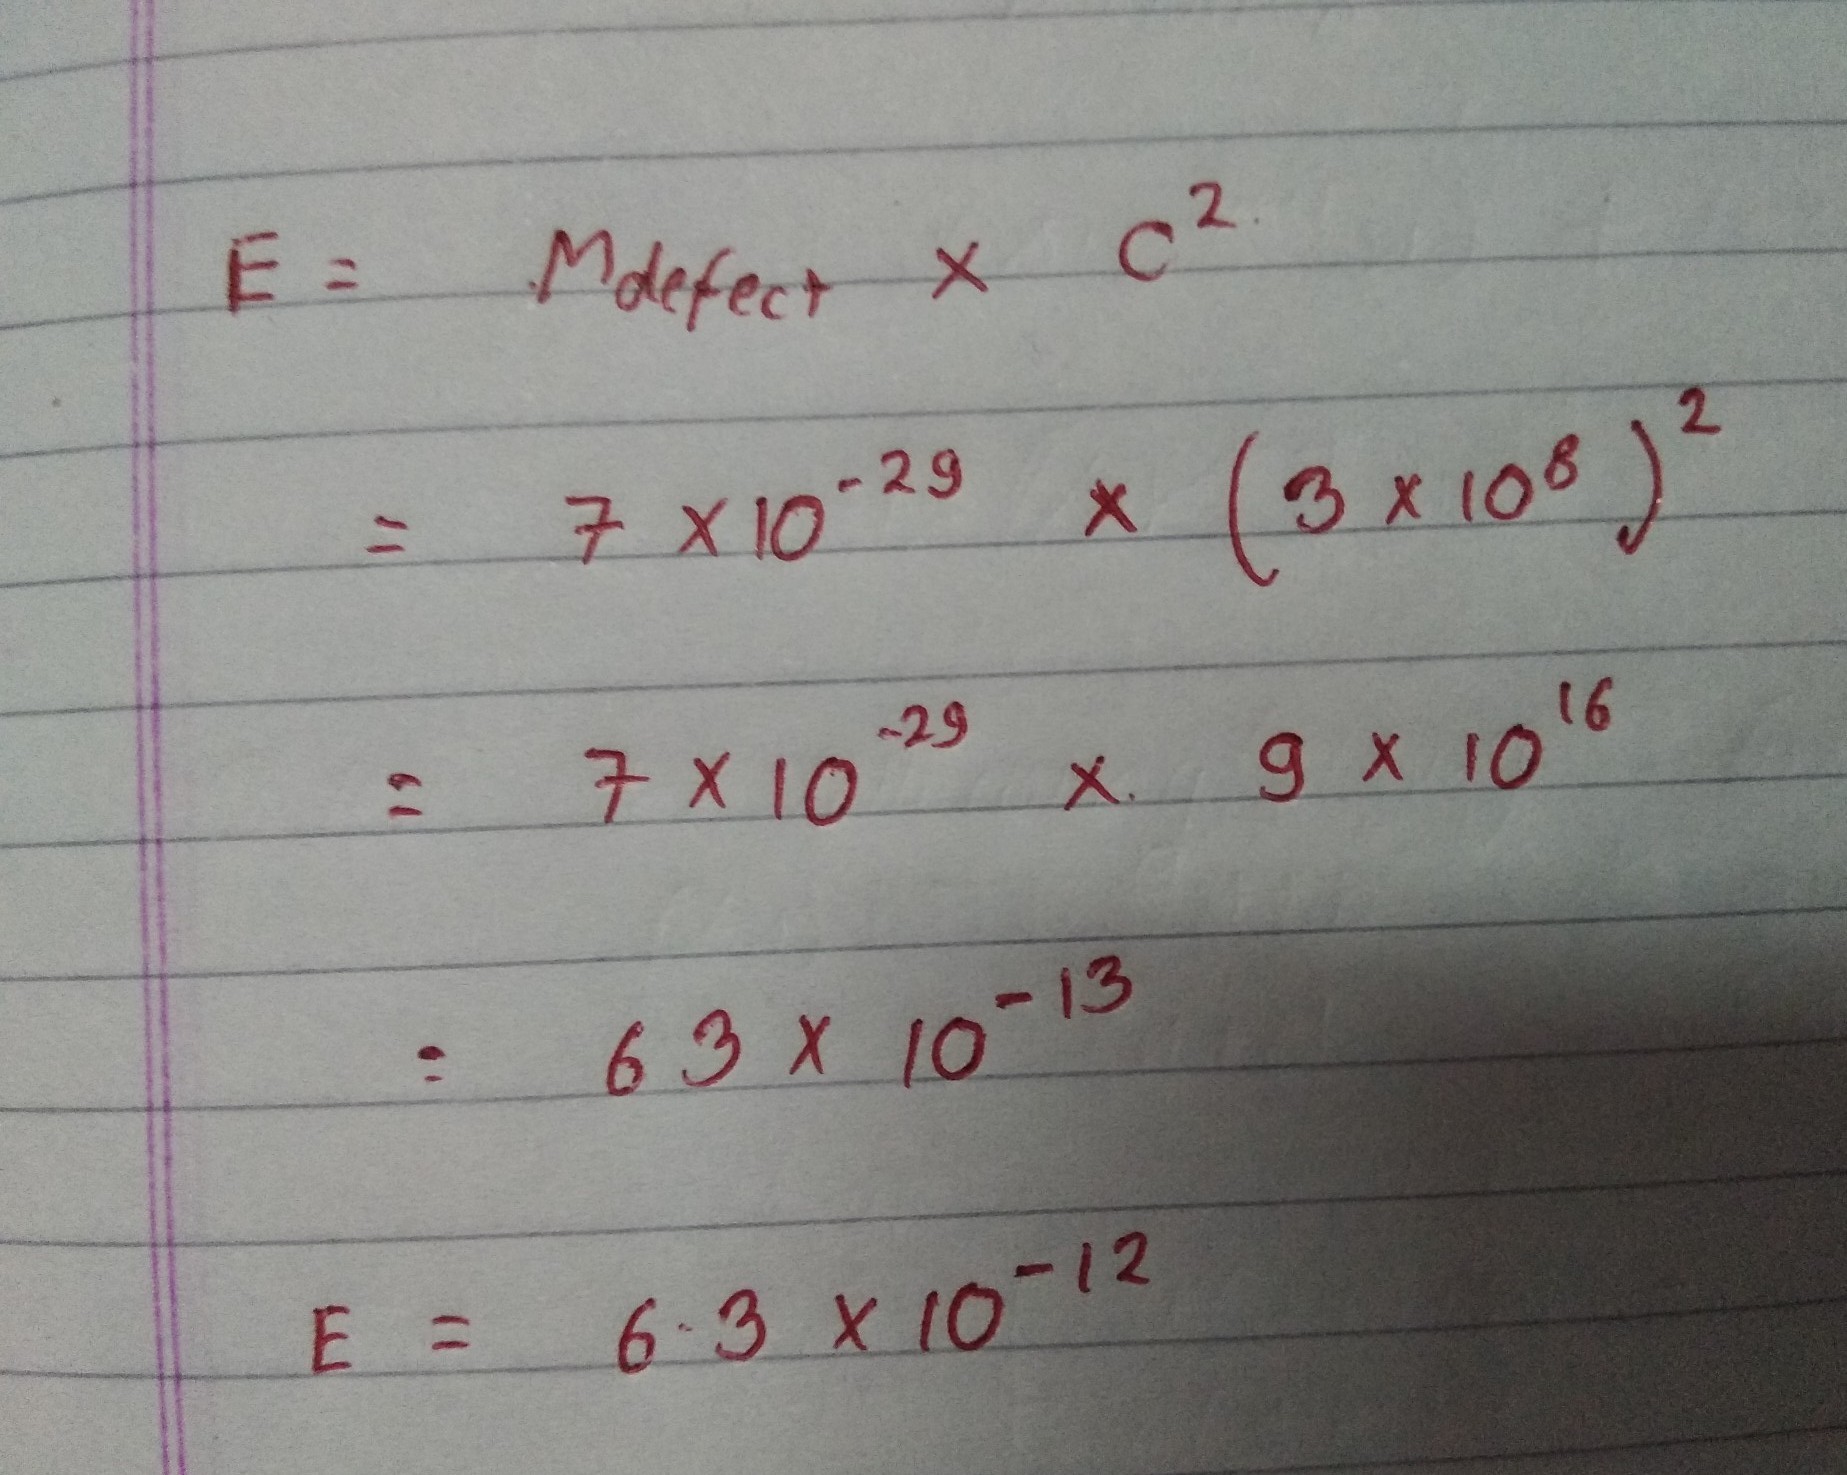 E = Mdefect × C²
= 7 × 10⁻²⁹ × (3 × 10⁸)²
= 7 × 10⁻²⁹ × 9 × 10¹⁶
= 63 × 10⁻¹³
E = 6.3 × 10⁻¹²